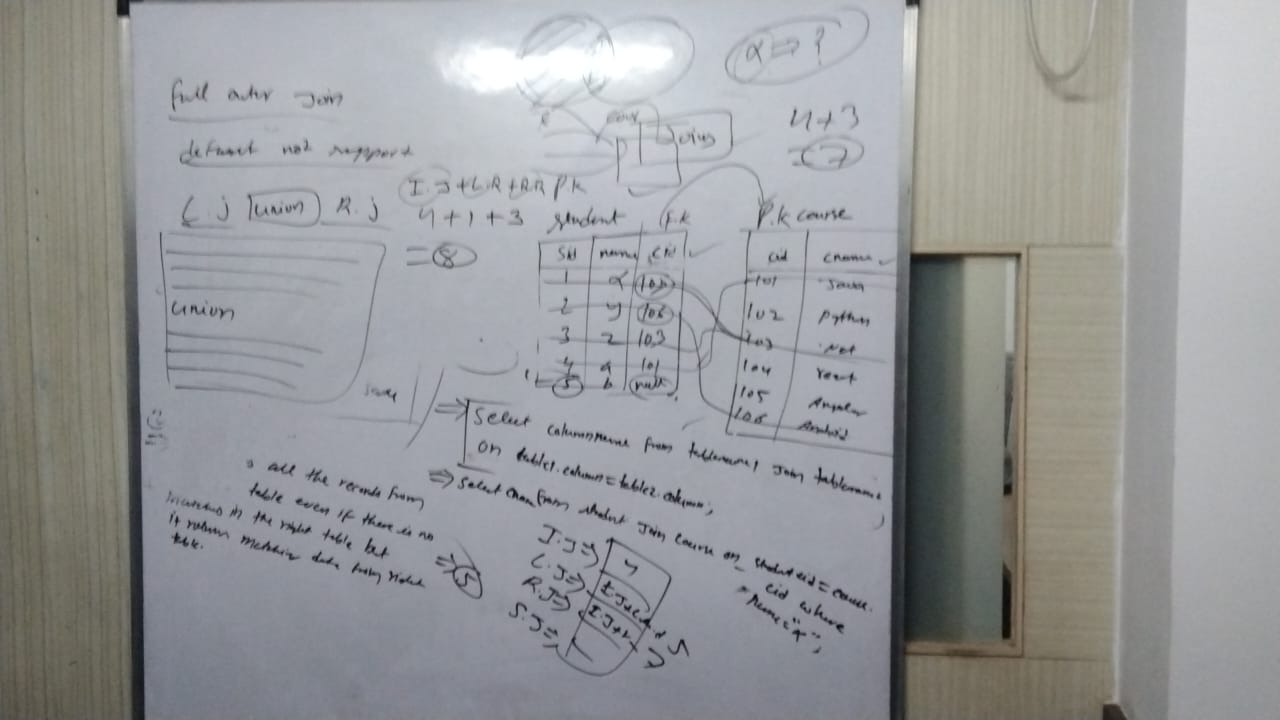 α => ?
full outer join
4+3
=7
Joins
default not support
I.J+L.R+RR P.K
L.j union R.j
4+1+3
=8
student F.K
P.K course
sid name cid
1 α
2 y 106
3 z 103
4 a 101
5 b null
cid cname
101 Java
102 python
103 .Net
104
105 Angular
106 Android
union
=> Select columnname from tablename1 join tablename
on table1.column = table2.column;
=> select cname from student join course on student.cid = course.
cid where
name="α";
all the records from
table even if there is no
in the right table but
it return matching data from right
table.
=> 5
I.J=> 4
L.J=> 5
R.J=> I.J+ 7
S.J=>